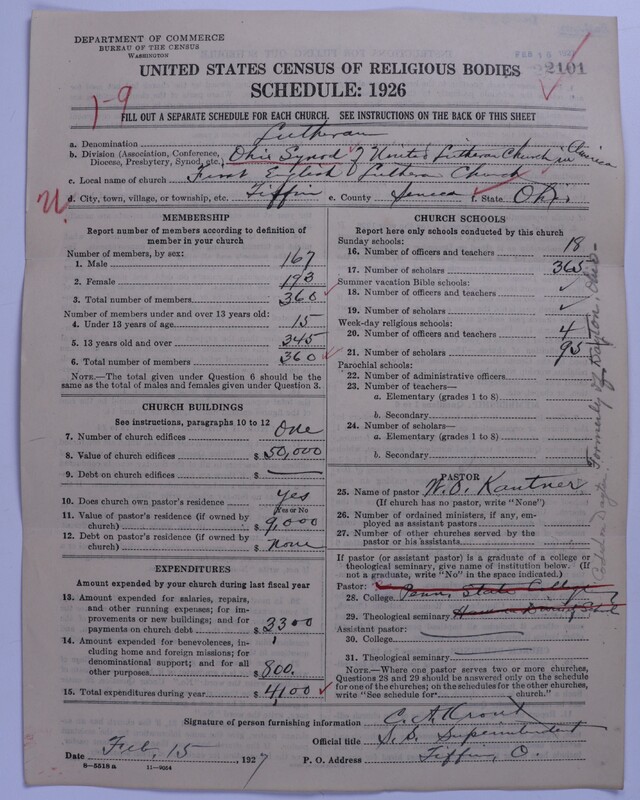 DEPARTMENT OF COMMERCE
BUREAU OF THE CENSUS
WASHINGTON
UNITED STATES CENSUS OF RELIGIOUS BODIES
2101
SCHEDULE: 1926
1-9
FILL OUT A SEPARATE SCHEDULE FOR EACH CHURCH. SEE INSTRUCTIONS ON THE BACK OF THIS SHEET
a. Denomination Lutheran
b. Division (Association, Conference, Diocese, Presbytery, Synod, etc.) Ohio Synod of United Lutheran Church in America
c. Local name of church First English Lutheran Church
d. City, town, village, or township, etc. Tiffin e. County Seneca f. State Ohio
U.
MEMBERSHIP
Report number of members according to definition of
member in your church
Number of members, by sex:
1. Male 167
2. Female 193
3. Total number of members 360
Number of members under and over 13 years old:
4. Under 13 years of age 15
5. 13 years old and over 345
6. Total number of members 360
NOTE.—The total given under Question 6 should be the
same as the total of males and females given under Question 3.
CHURCH BUILDINGS
See instructions, paragraphs 10 to 12
7. Number of church edifices One
8. Value of church edifices $ 50,000
9. Debt on church edifices $ —
10. Does church own pastor's residence Yes
Yes or No
11. Value of pastor's residence (if owned by
church) $ 9,000
12. Debt on pastor's residence (if owned by
church) $ None
EXPENDITURES
Amount expended by your church during last fiscal year
13. Amount expended for salaries, repairs,
and other running expenses; for im-
provements or new buildings; and for
payments on church debt $ 3300
14. Amount expended for benevolences, in-
cluding home and foreign missions; for
denominational support; and for all
other purposes $ 800.
15. Total expenditures during year $ 4,100
CHURCH SCHOOLS
Report here only schools conducted by this church
Sunday schools:
16. Number of officers and teachers 18
17. Number of scholars 365
Summer vacation Bible schools:
18. Number of officers and teachers
19. Number of scholars
Week-day religious schools:
20. Number of officers and teachers 4
21. Number of scholars 95
Parochial schools:
22. Number of administrative officers
23. Number of teachers—
a. Elementary (grades 1 to 8)
b. Secondary
24. Number of scholars—
a. Elementary (grades 1 to 8)
b. Secondary
PASTOR
25. Name of pastor W. O. Kantner
(If church has no pastor, write "None")
26. Number of ordained ministers, if any, em-
ployed as assistant pastors
27. Number of other churches served by the
pastor or his assistants
If pastor (or assistant pastor) is a graduate of a college or
theological seminary, give name of institution below. (If
not a graduate, write "No" in the space indicated.)
Pastor:
28. College Penn. State College
29. Theological seminary
Assistant pastor:
30. College
31. Theological seminary
NOTE.—Where one pastor serves two or more churches,
Questions 28 and 29 should be answered only on the schedule
for one of the churches; on the schedules for the other churches,
write "See schedule for church."
Formerly of Dayton, Ohio—
Signature of person furnishing information C. A. Krout
Official title S. S. Superintendent
Date Feb. 15 1927 P. O. Address Tiffin, O.
8—5518 a 11—9054